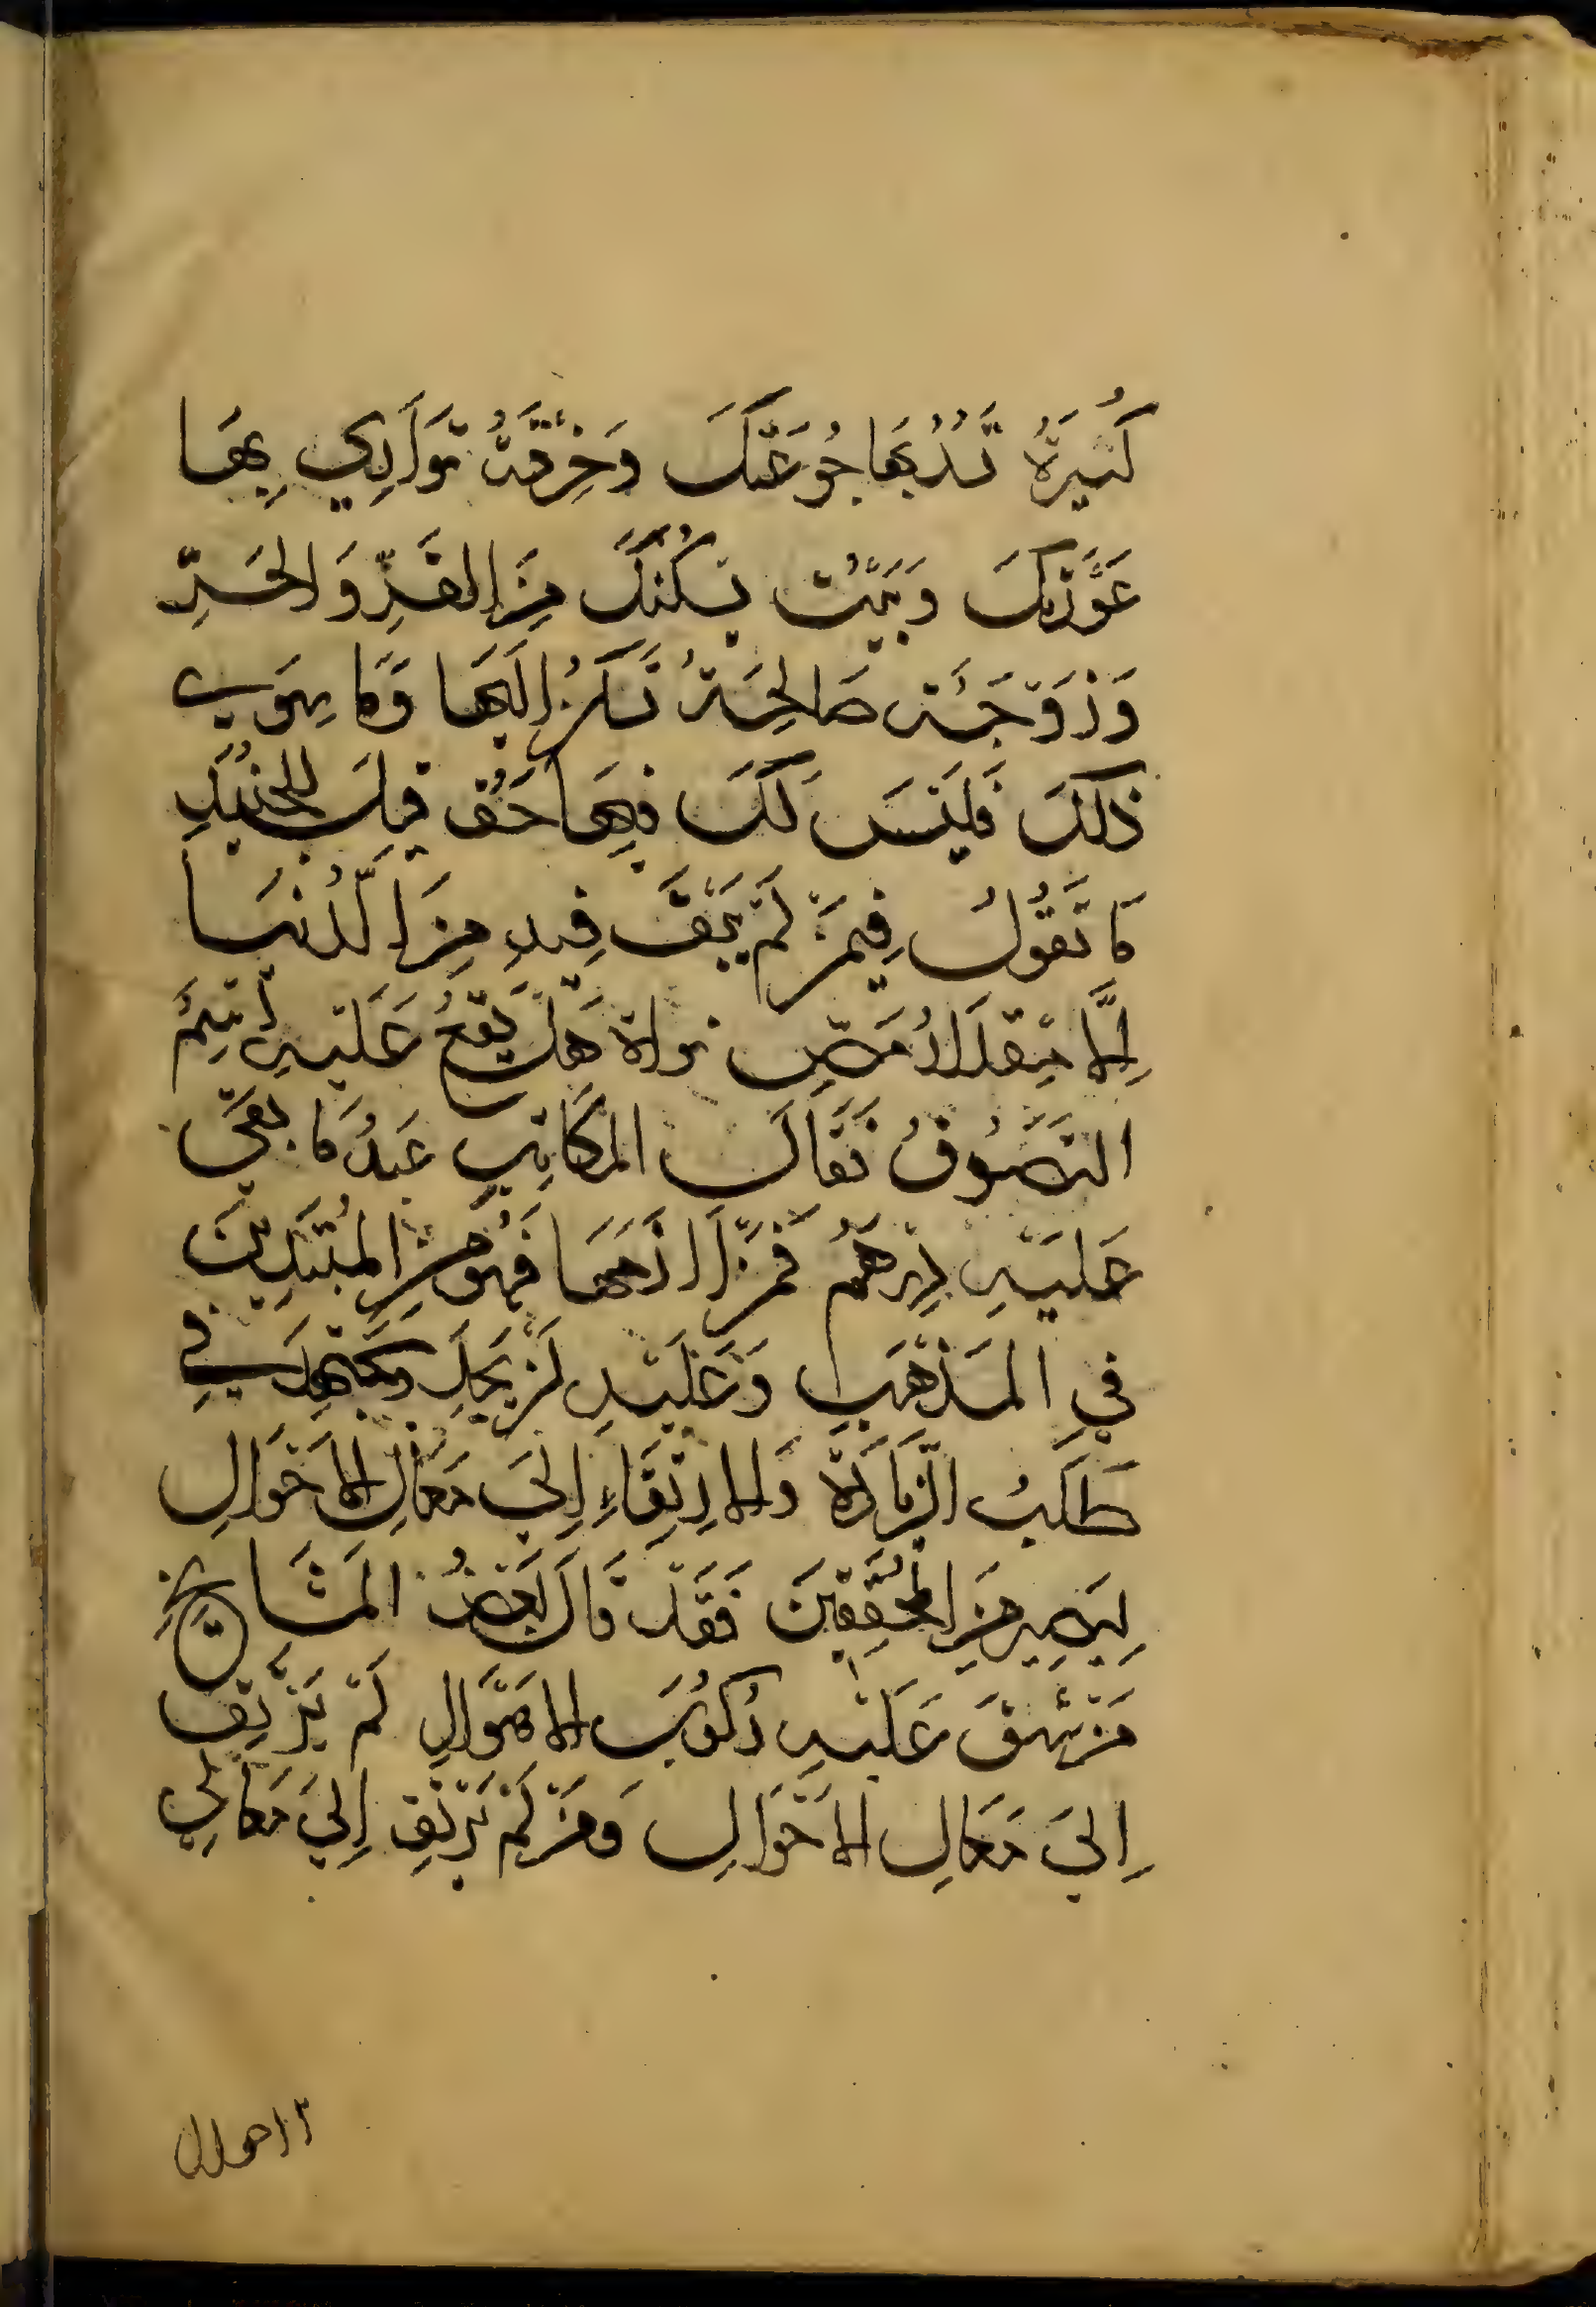 كُسَيرَةٌ تَسُدُّ بِهَا جُوعَتَكَ وَخِرْقَةٌ تُوَارِي بِهَا
عَوْرَتَكَ وَبَيْتٌ يَكُنُّكَ مِنَ القَرِّ وَالحَرِّ
وَزَوْجَةٌ صَالِحَةٌ تَسْكُنُ إِلَيْهَا وَمَا سِوَي
ذَلِكَ فَلَيْسَ لَكَ فِيهَا حَقٌ قِيلَ لِلجُنَيْدِ
مَا تَقُولُ فِيمَنْ لَمْ يَبْقَ فِيهِ مِنَ الدُّنْيَا
إِلَّا مِقْدَارُ مَصِّ نَوَاة هَلْ يَقَعُ عَلَيْهِ اسْمُ
التَصَوُّفِ فَقَالَ المكَاتِبُ عَبدٌ مَا بَقِيَ
عَلَيْهِ دِرْهَمٌ فَمَنْ لَزِمَهَا فَهُوَ مِنَ المُبْتَدِينَ
فِي المَذْهَبِ وَعَلَيْهِ أَنْ يَجِدَّ وَيَجْتَهِدَ فِي
طَلَبِ الزِّيَادَةِ وَالارْتِقَاءِ إِلَيَ مَعَالِ الأَحْوَالِ
لِيَصِيرَ مِنَ المُحَقِّقِينَ فَقَدْ قَالَ بَعْضُ المَشَايِخِ
مَنْ شَقَّ عَلَيْهِ رُكُوبُ الأَهْوَالِ لَمْ يَرْتَقِ
إِلَيَ مَعَالِ الأَحْوَالِ وَمَنْ لَمْ يَرْتَقِ إِلَيَ مَعَالِي